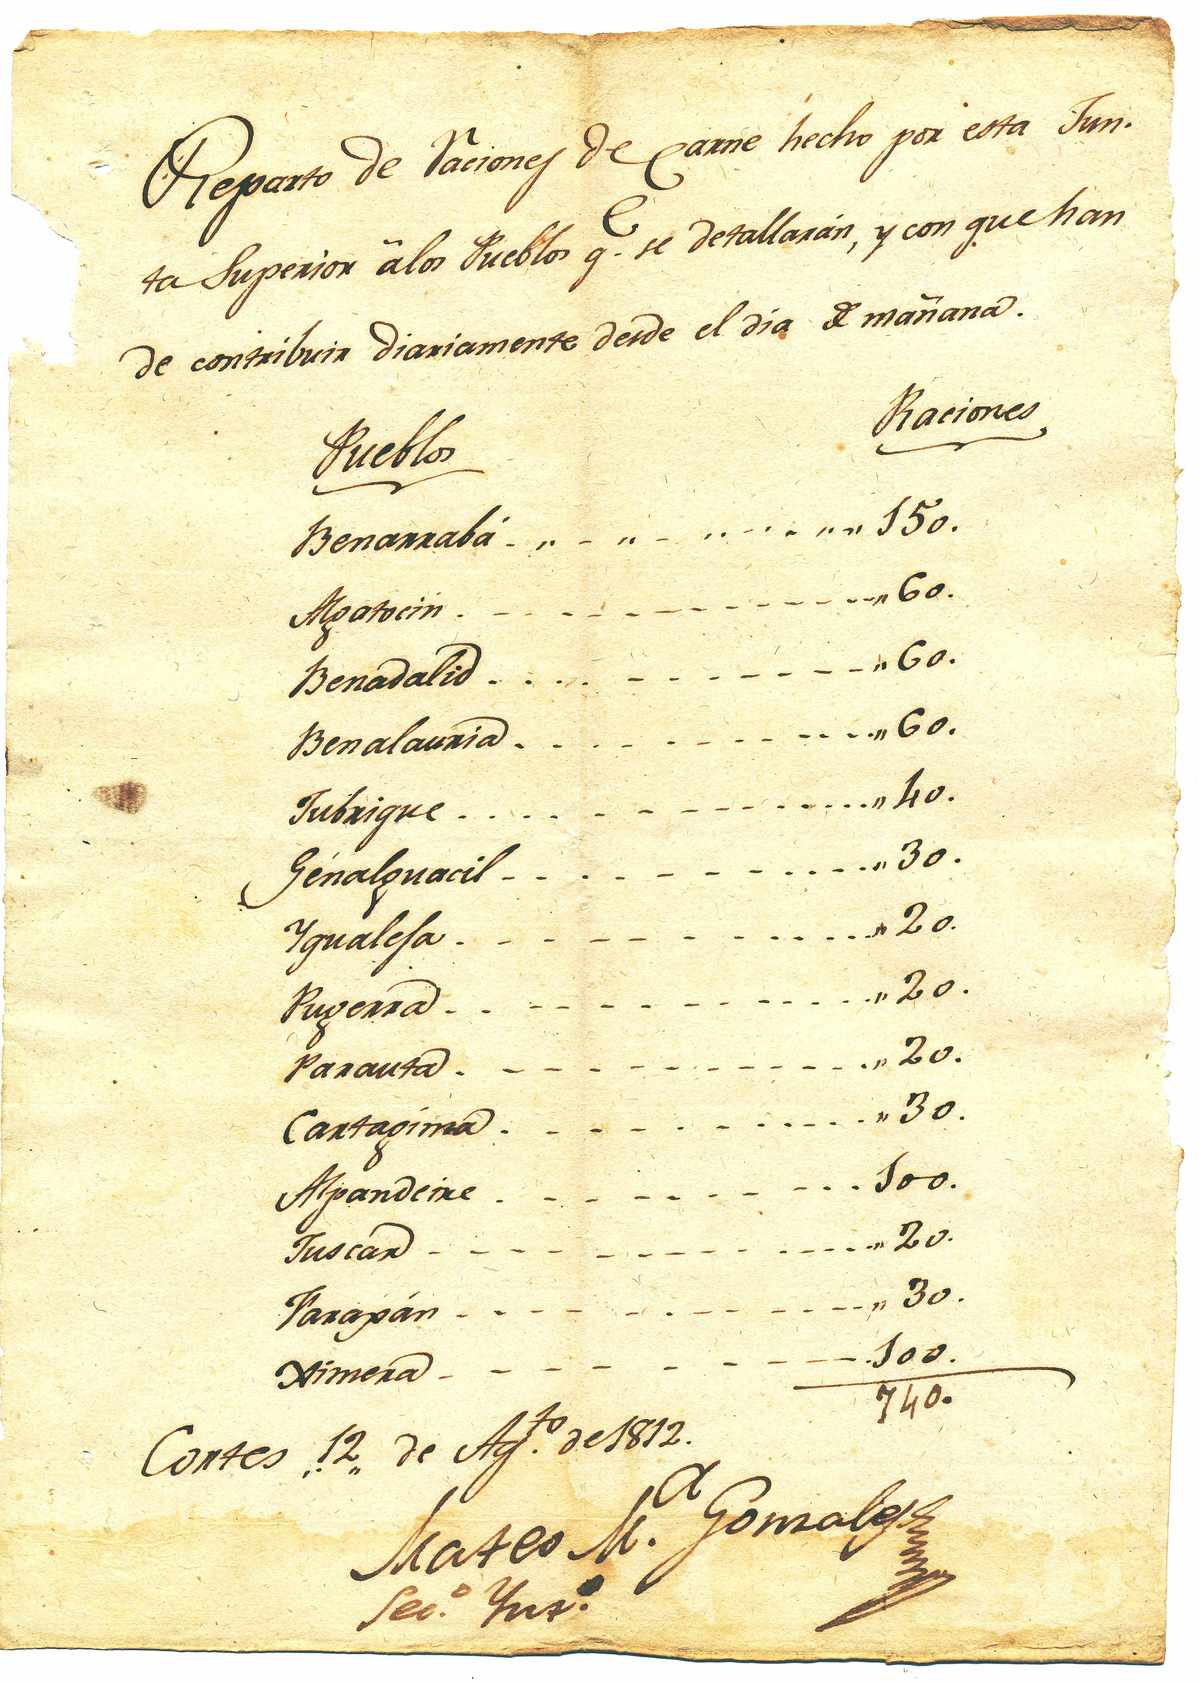 Reparto de Raciones de Carne hecho por esta Jun-
ta Superior â los Pueblos q.e se detallarán, y con que han
de contribuir diariamente desde el dia de mañana.
Pueblos Raciones
Benarrabá - „ - „ - „ - „ „ 150.
Algatocin . - - - - „ 60.
Benadalid . . . . - - - „ 60.
Benalauria . . . . - - - „ 60.
Jubrique . . . . - - - „ 40.
Génalguacil - - . . - - - „ 30.
Ygualesa . - - - - „ 20.
Pugerra . . - - - - „ 20.
Parauta . - - - - „ 20.
Cartagima . - - - - „ 30.
Alpandeire . - - - - 100.
Juscar - - - - „ 20.
Faraxán - - - - „ 30.
Ximera - - - - 100.
740.
Cortes „12„ de Ag.to de 1812.
Mateo M.a Gonzalez
Sec.o